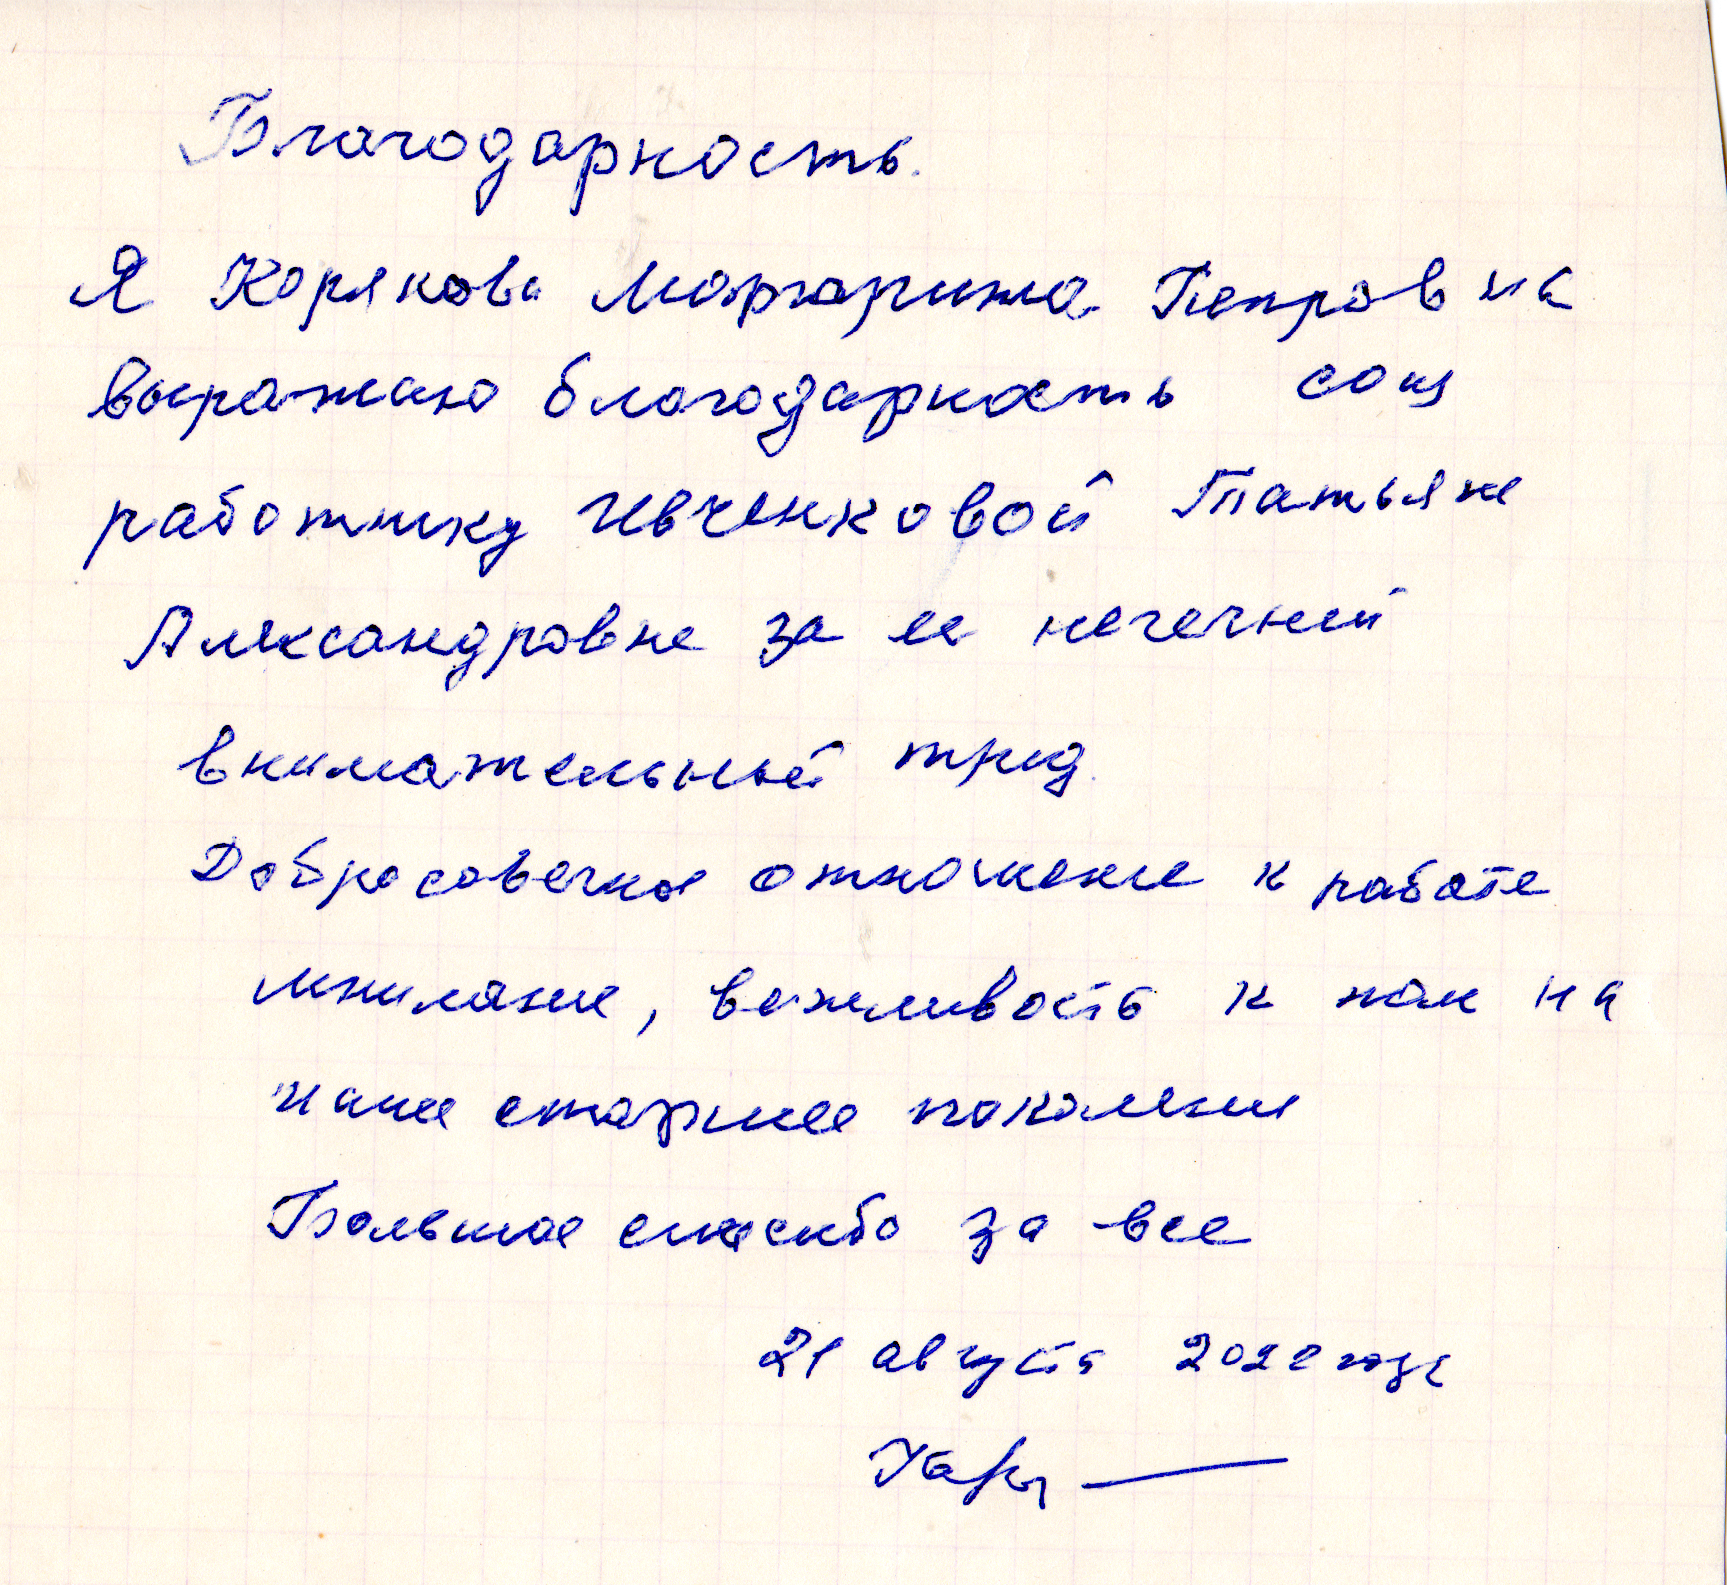 Благодарность.
Я Корякова Маргарита Петровна
выражаю благодарность соц
работнику Ивченковой Татьяне
Александровне за ее
внимательный труд.
Добросовечное отношение к работе
внимание, вежливость к нам на
наше старшее поколение
Большое спасибо за все
21 августа 2022 года